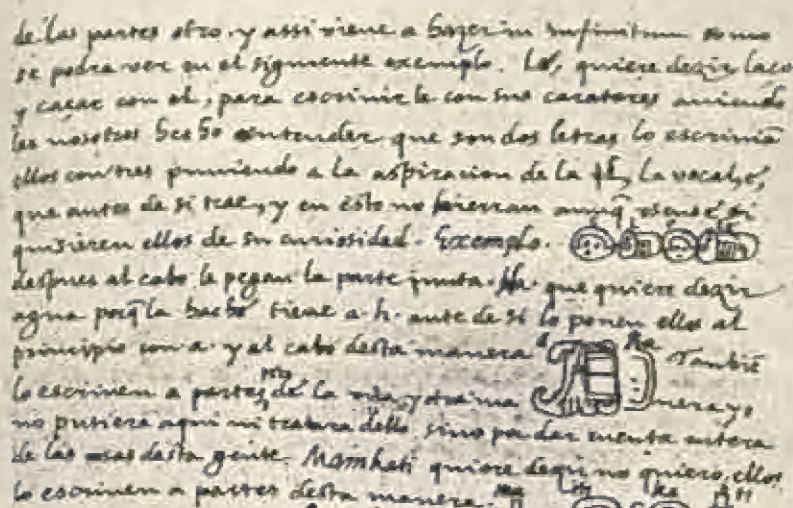 de las partes otro, y assi viene a hazer in infinitum como
se podra ver en el siguiente exemplo. Lé, quiere dezir laço
y caçar con el, para escrivirle con sus carateres aviendo
les nosotros hecho entender que son dos letras lo escrivian
ellos con tres puniendo a la aspiracion de la l, la vocal, é,
que antes de si trae, y en esto no hierran aunq̃ usense, si
quisieren ellos de su curiosidad. Exemplo.
despues al cabo le pegan la parte junta. Ha. que quiere dezir
agua porq̃ la hache tiene a. h. ante de si lo ponen ellos al
principio con a. y al cabo desta manera a ha Tambiẽ
lo escriven a partes, de la una y otra ma nera, yo
no pusiera aqui ni tratara dello sino por dar cuenta entera
de las cosas desta gente. Mainkati quiere dezir no quiero, ellos
lo escriven a partes desta manera. ma i n ka ti